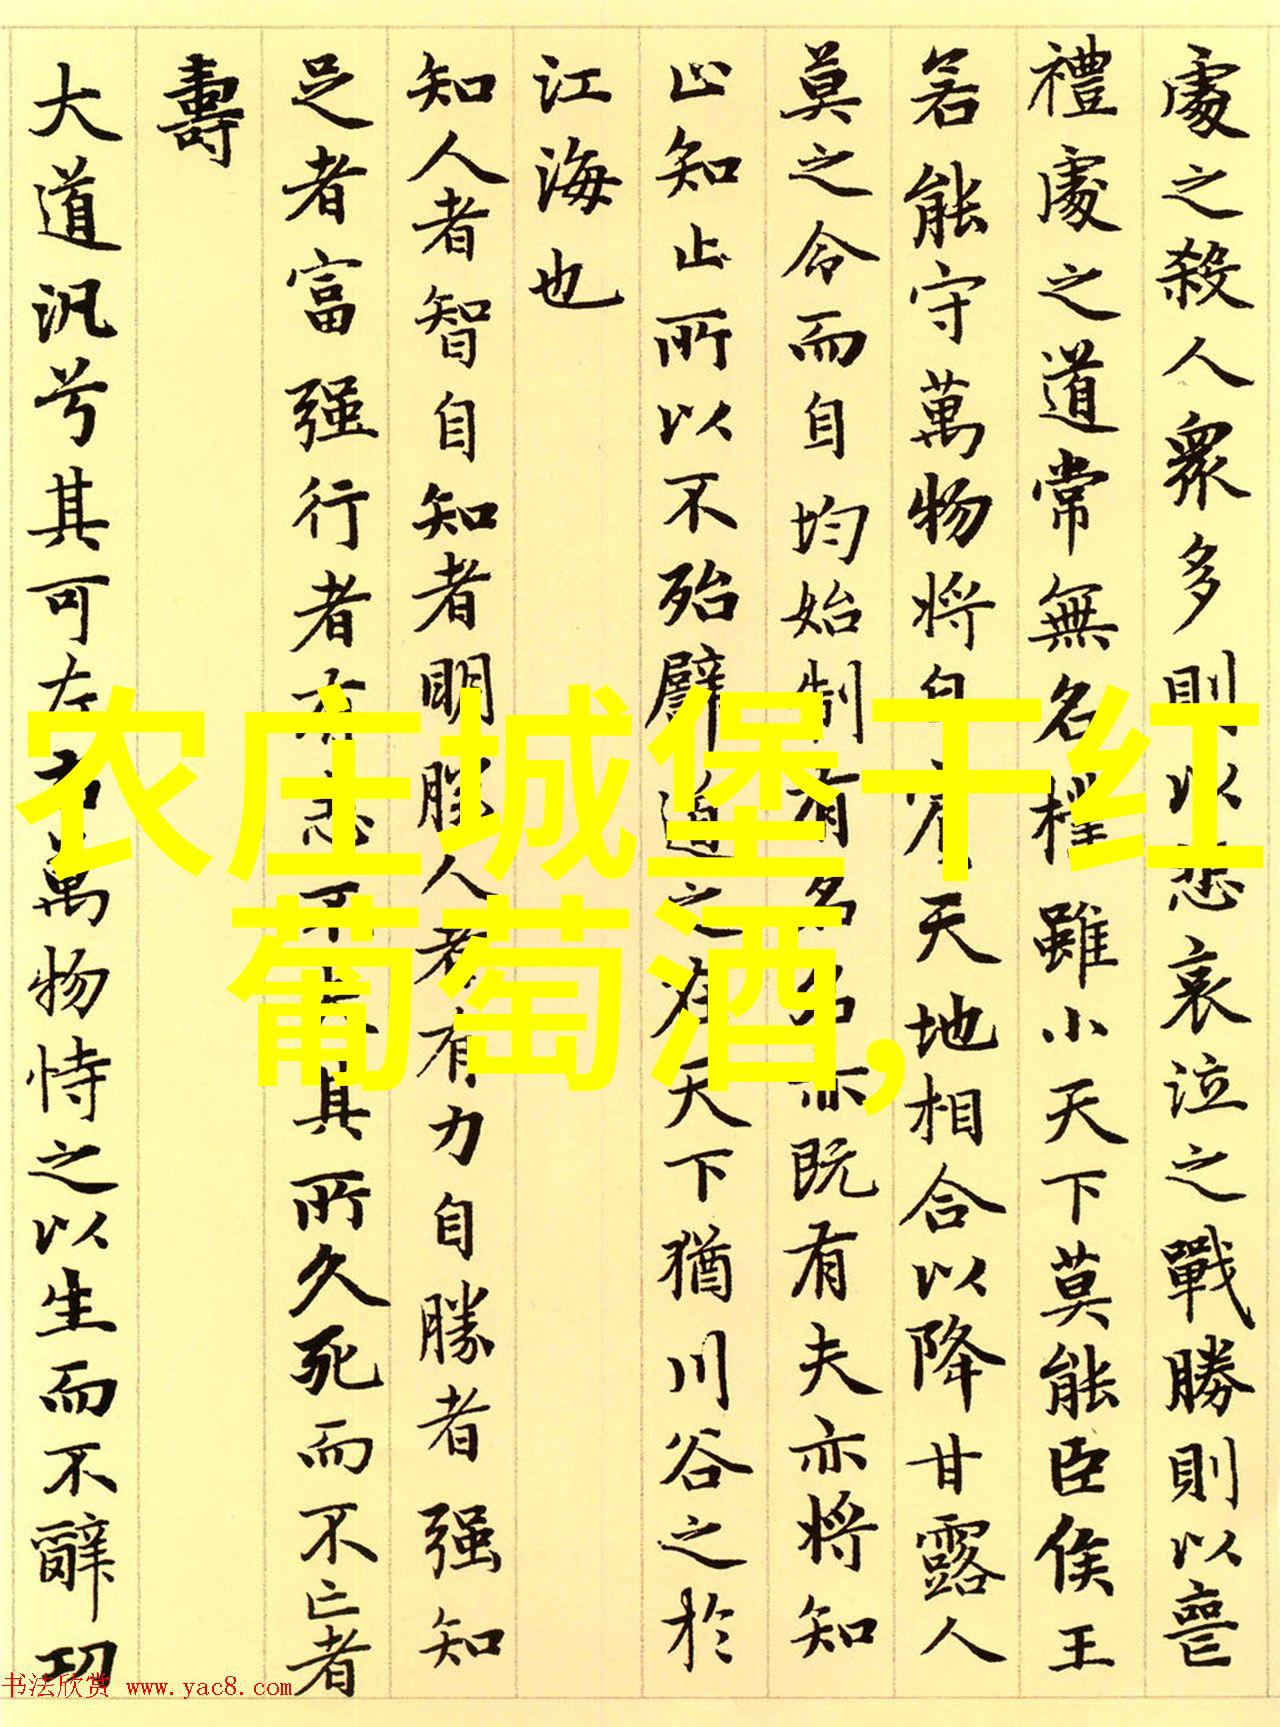 處之殺人衆多則以悲哀泣之戰勝則以喪
禮處之道常無名樸雖小天下莫能臣侯王
若能守萬物將自賓天地相合以降甘露人
莫之令而自均始制有名名亦既有夫亦將知
止知止所以不殆譬道之在天下猶川谷之於
江海也
知人者智自知者明勝人者有力自勝者强知
足者富强行者有志不失其所久死而不亡者
壽
大道汎兮其可左右萬物恃之以生而不辭功
农庄城堡干红
葡萄酒,
书法欣赏 www.yac8.com